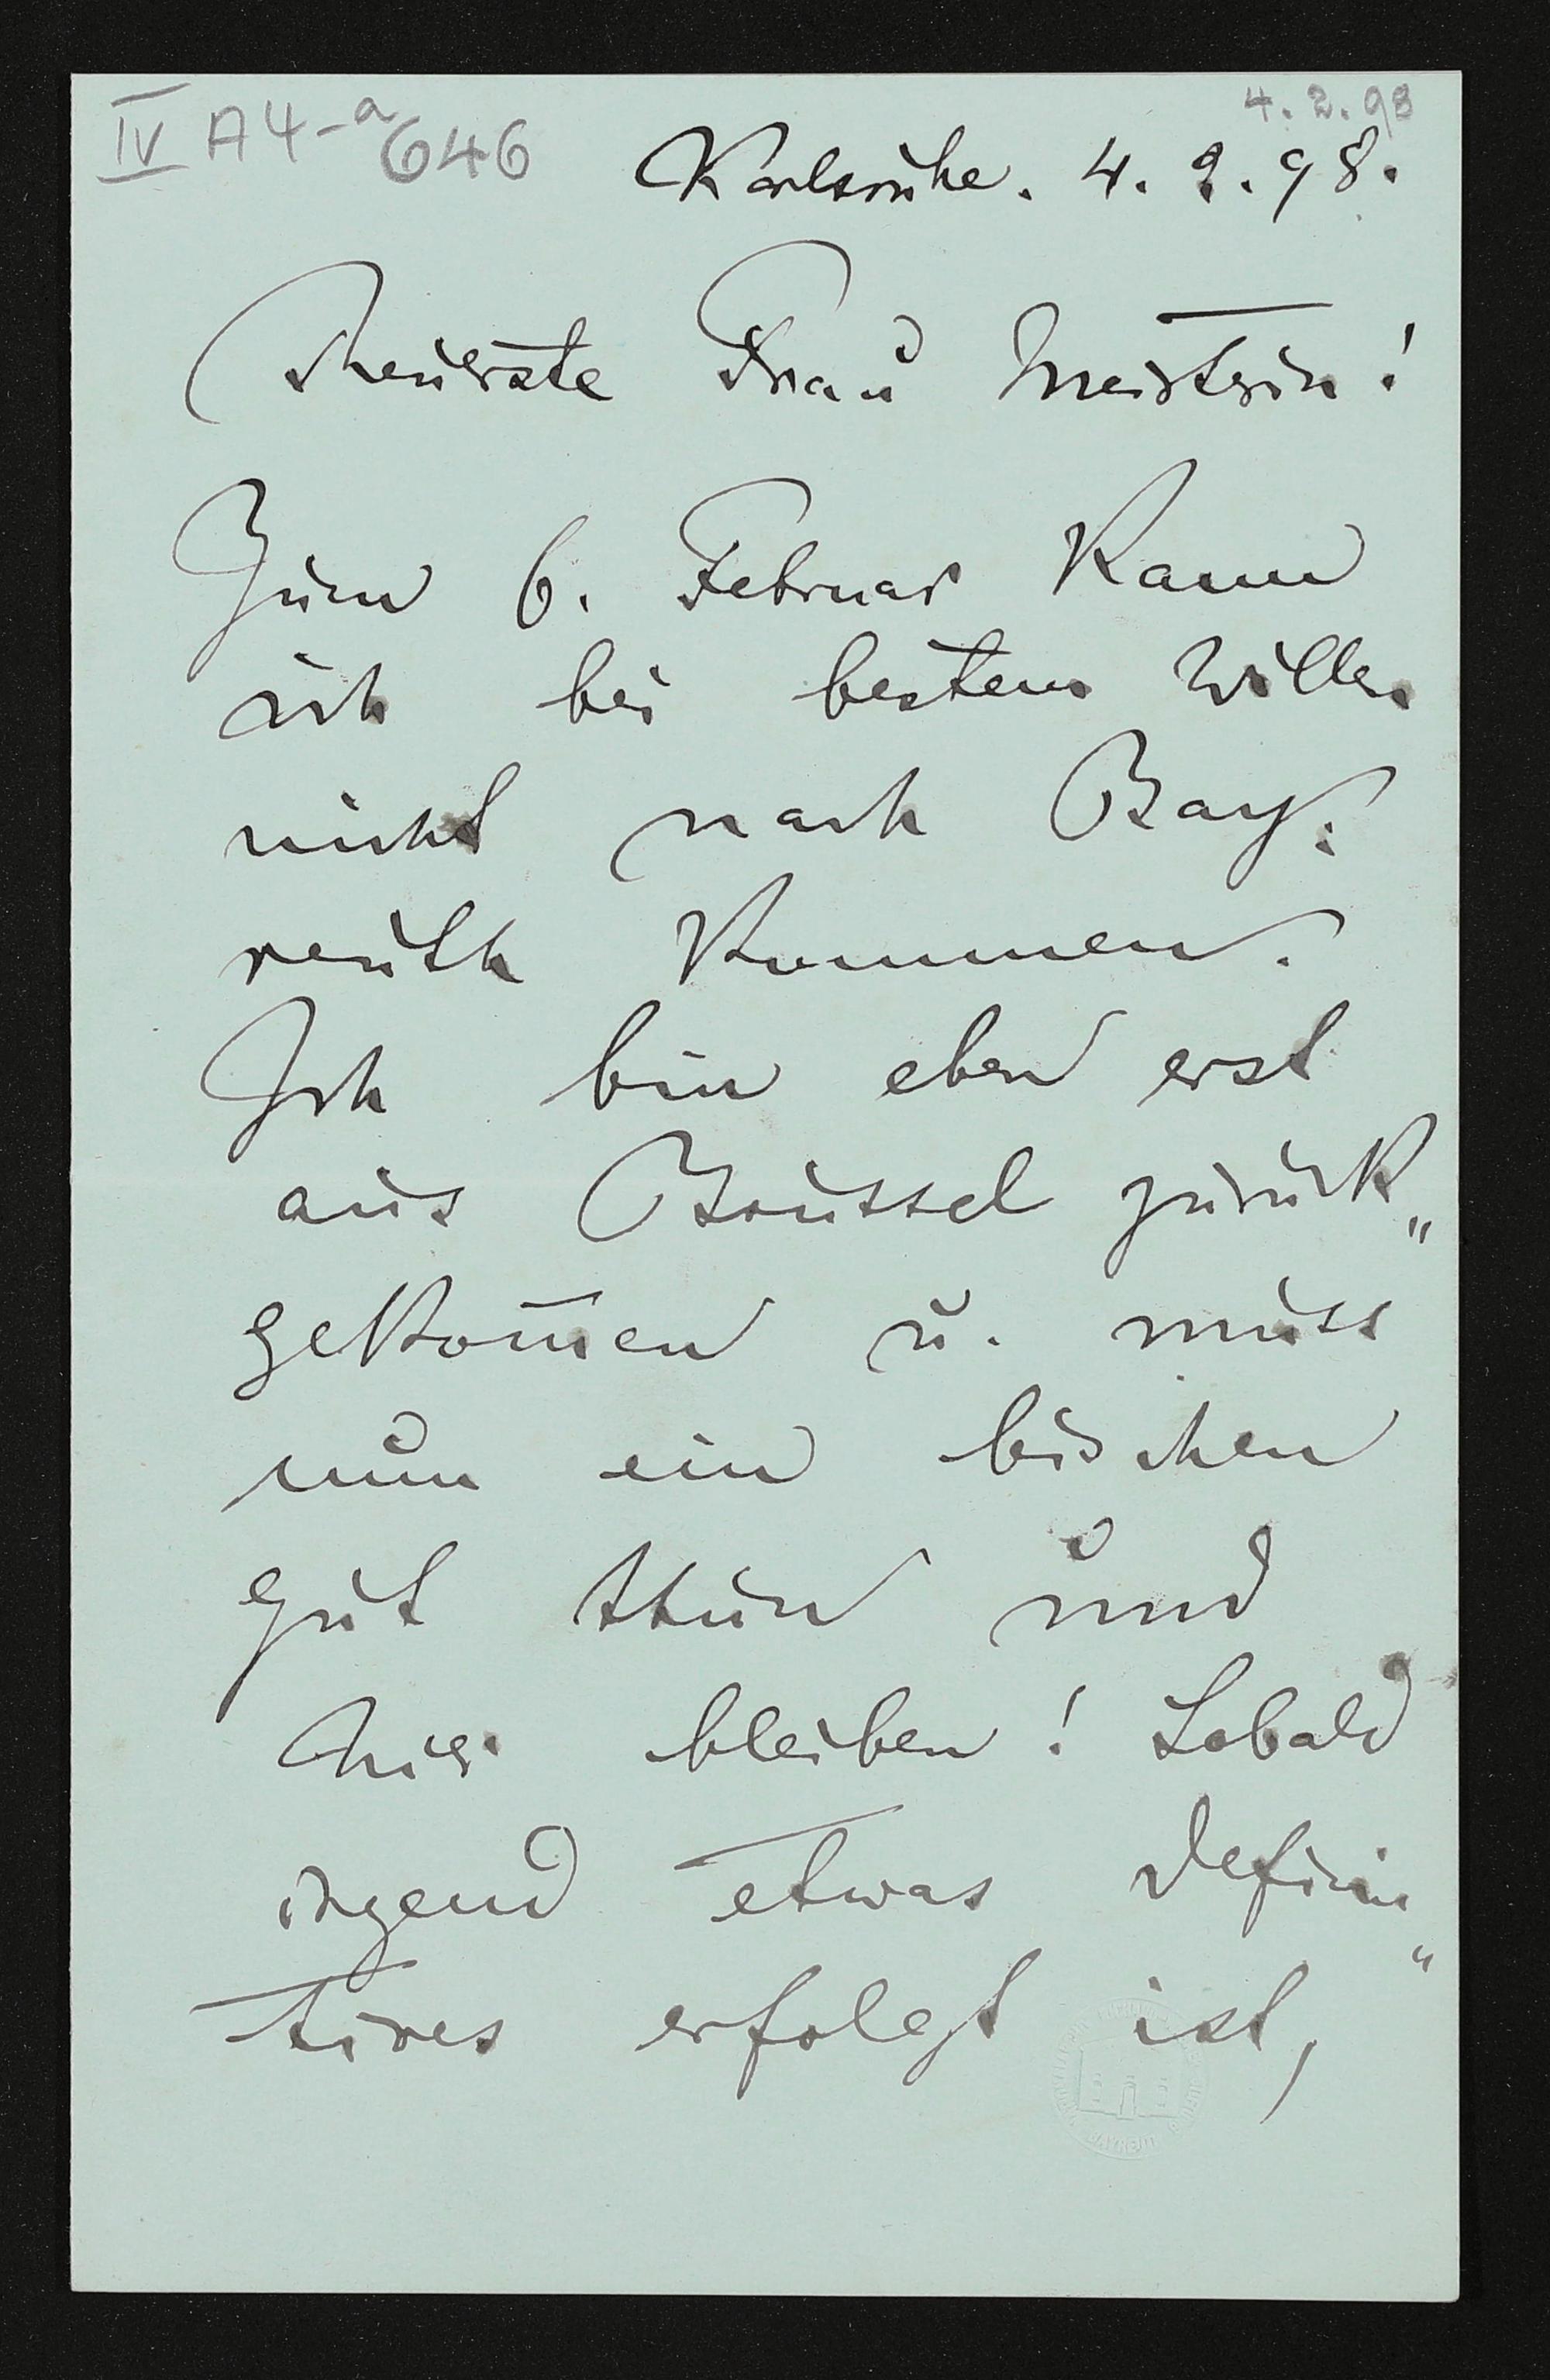 IV A4-a 646
4.2.98
Karlsruhe. 4.2.98.
Theuerste Frau Meisterin!
Zum 6. Februar kann
ich bei bestem Willen
nicht nach Bay:
reuth kommen.
Ich bin eben erst
aus Brüssel zurück„
gekom̅en u. muss
nun ein bischen
gut thun und
hier bleiben! Sobald
irgend etwas Defini„
tives erfolgt ist,